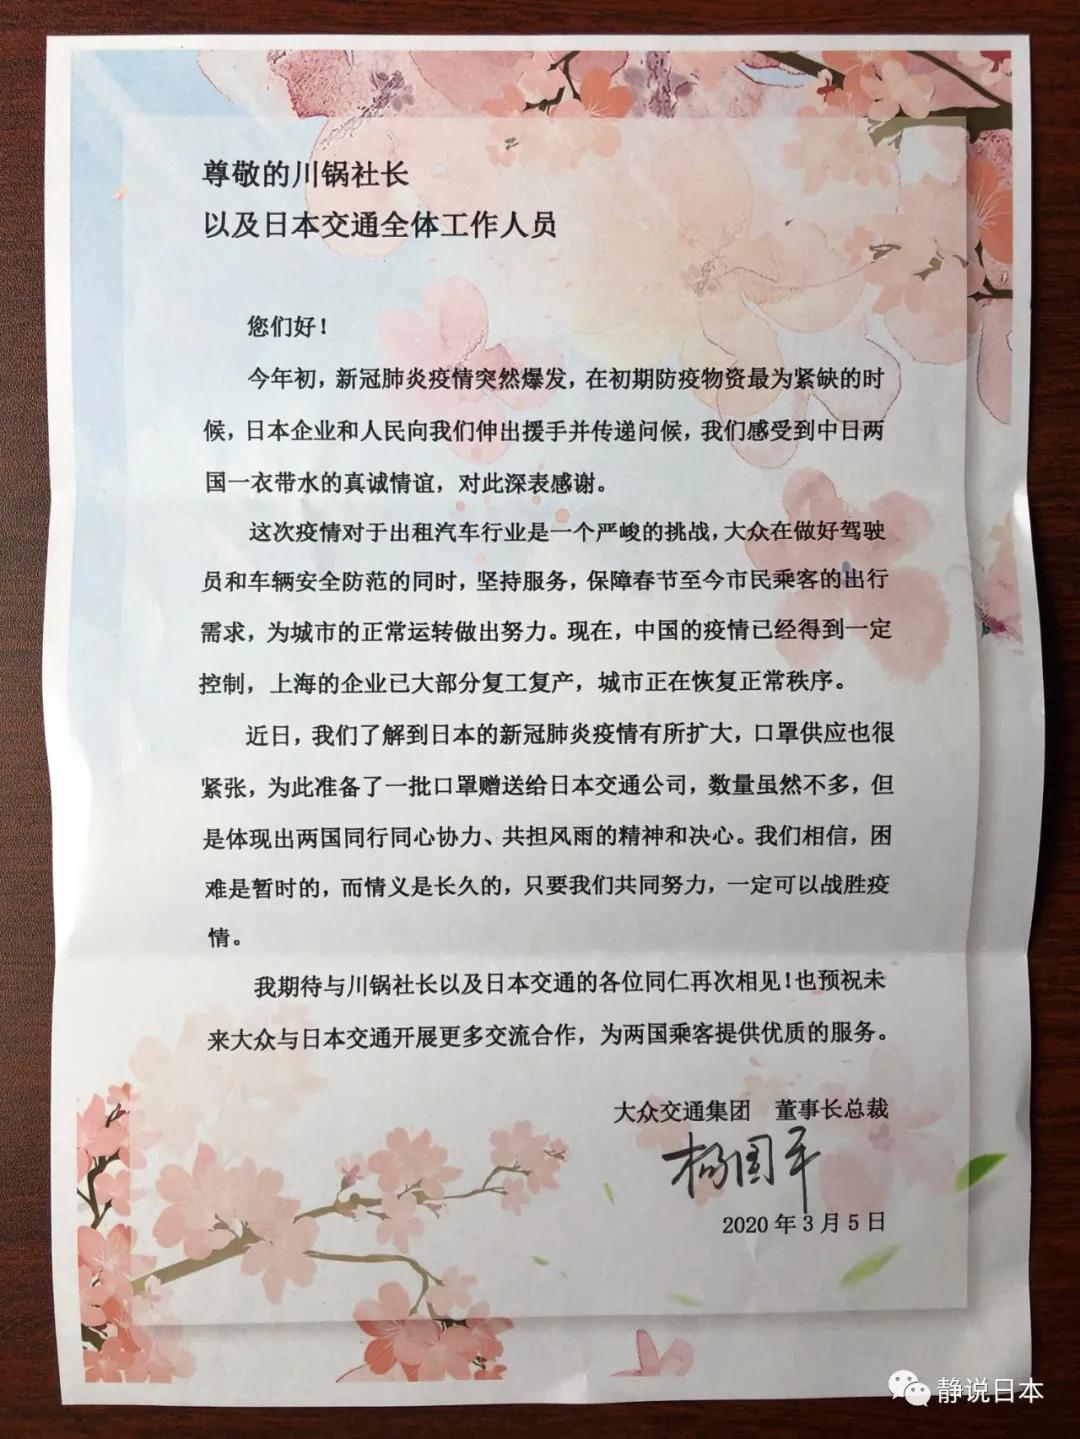 尊敬的川锅社长
以及日本交通全体工作人员
您们好！
今年初，新冠肺炎疫情突然爆发，在初期防疫物资最为紧缺的时
候，日本企业和人民向我们伸出援手并传递问候，我们感受到中日两
国一衣带水的真诚情谊，对此深表感谢。
这次疫情对于出租汽车行业是一个严峻的挑战，大众在做好驾驶
员和车辆安全防范的同时，坚持服务，保障春节至今市民乘客的出行
需求，为城市的正常运转做出努力。现在，中国的疫情已经得到一定
控制，上海的企业已大部分复工复产，城市正在恢复正常秩序。
近日，我们了解到日本的新冠肺炎疫情有所扩大，口罩供应也很
紧张，为此准备了一批口罩赠送给日本交通公司，数量虽然不多，但
是体现出两国同行同心协力、共担风雨的精神和决心。我们相信，困
难是暂时的，而情义是长久的，只要我们共同努力，一定可以战胜疫
情。
我期待与川锅社长以及日本交通的各位同仁再次相见！也预祝未
来大众与日本交通开展更多交流合作，为两国乘客提供优质的服务。
大众交通集团 董事长总裁
杨国平
2020年3月5日
静说日本